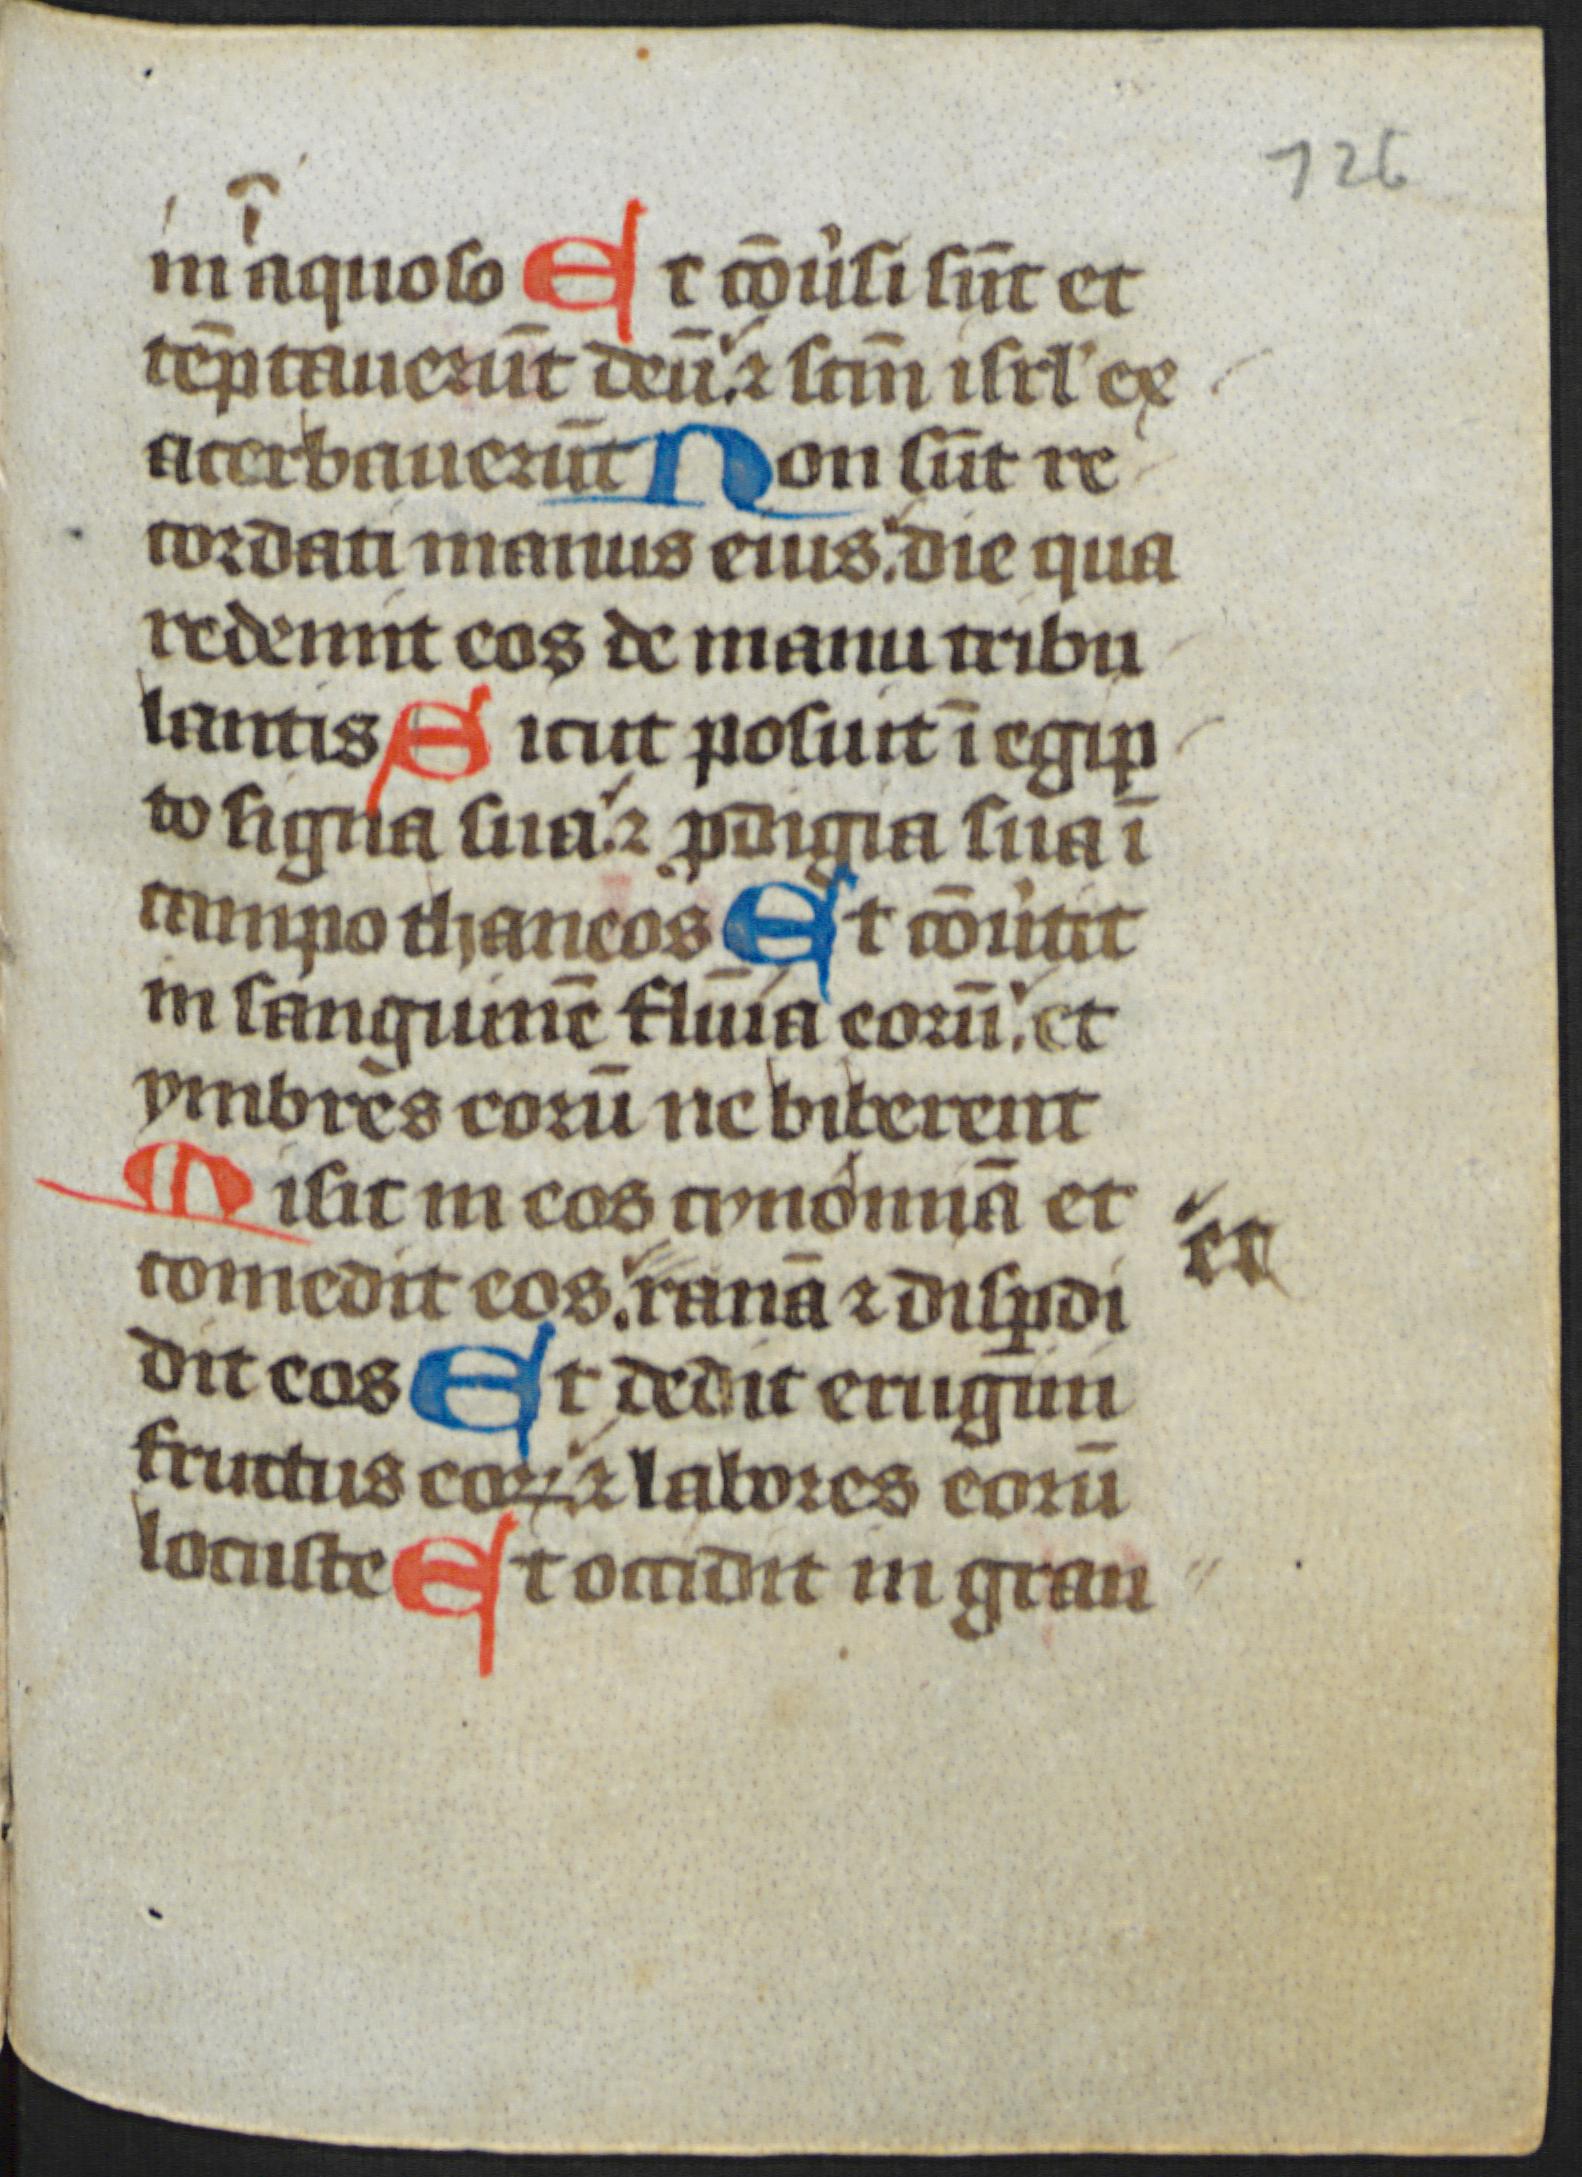 126
in ī aquoso Et cōu'si sūt et
tēptauerūt deū. ⁊ scm̄ isrl' ex
acerbauerūt Non sūt re
cordati manus eius. die qua
redemit eos de manu tribu
lantis Sicut posuit ī egip
to signa sua. ⁊ ꝓdigia sua ī
campo thaneos Et cōu'tit
in sanguinē flūīa eorū. et
ymbres eorū ne biberent
Misit in eos cynomiā et
et
comedit eos. ranā ⁊ disꝑdi
dit eos Et dedit erugini
fructus eoꝝ ⁊ labores eorū
locuste Et occidit in gran